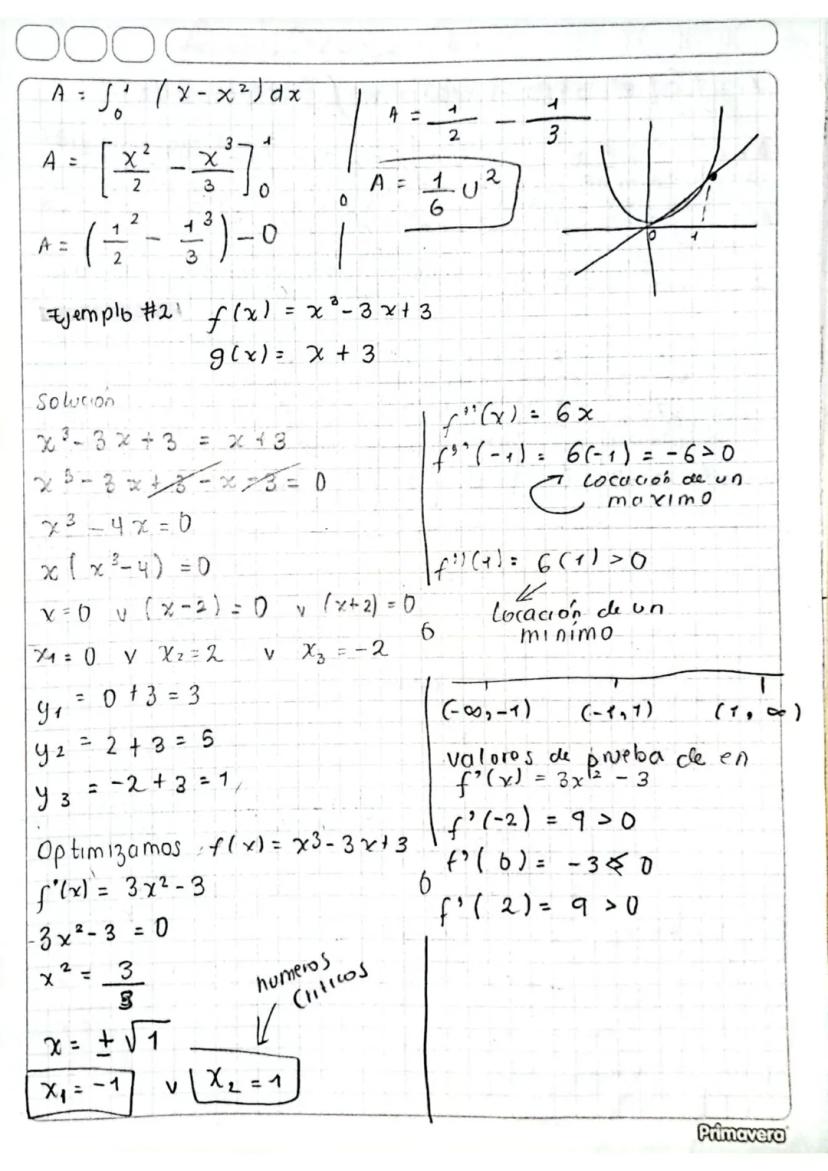 A = ∫₀¹ (x - x²) dx
A = [x²/2 - x³/3]₀¹
A = (1²/2 - 1³/3) - 0
A = 1/2 - 1/3
A = 1/6 U²
0 1
Ejemplo #2: f(x) = x³ - 3x + 3
g(x) = x + 3
Solución
x³ - 3x + 3 = x + 3
x³ - 3x + 3 - x - 3 = 0
x³ - 4x = 0
x(x³ - 4) = 0
x = 0 v (x - 2) = 0 v (x + 2) = 0
x₁ = 0 v x₂ = 2 v x₃ = -2
y₁ = 0 + 3 = 3
y₂ = 2 + 3 = 5
y₃ = -2 + 3 = 1
Optimizamos f(x) = x³ - 3x + 3
f'(x) = 3x² - 3
3x² - 3 = 0
x² = 3/3
x = ± √1
x₁ = -1 v x₂ = 1
numeros
criticos
f''(x) = 6x
f''(-1) = 6(-1) = -6 > 0
Locación de un
maximo
f''(1) = 6(1) > 0
Locación de un
minimo
(-∞, -1) (-1, 1) (1, ∞)
valores de prueba de en
f'(x) = 3x² - 3
f'(-2) = 9 > 0
f'(0) = -3 < 0
f'(2) = 9 > 0
Primavera